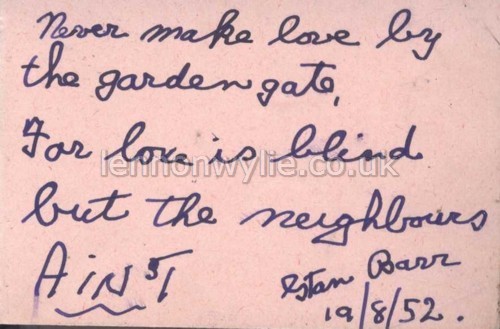 Never make love by
the garden gate,
For love is blind
lennonwylie.co.uk
but the neighbours
AiN'T
Stan Barr
19/8/52.